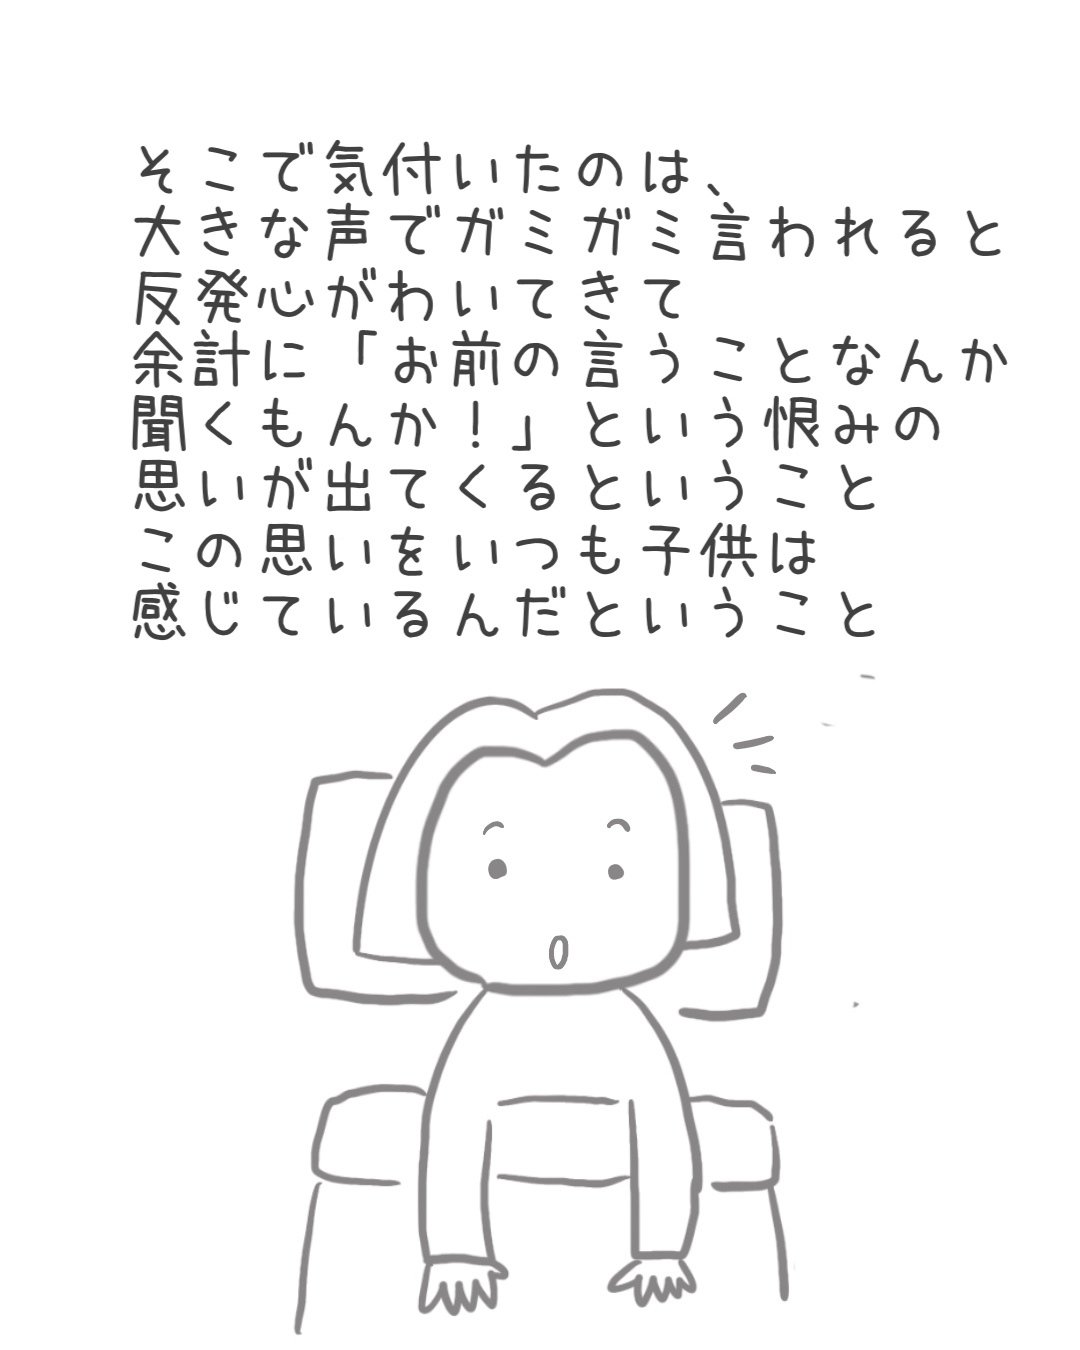 そこで気付いたのは、
大きな声でガミガミ言われると
反発心がわいてきて
余計に「お前の言うことなんか
聞くもんか！」という恨みの
思いが出てくるということ
この思いをいつも子供は
感じているんだということ